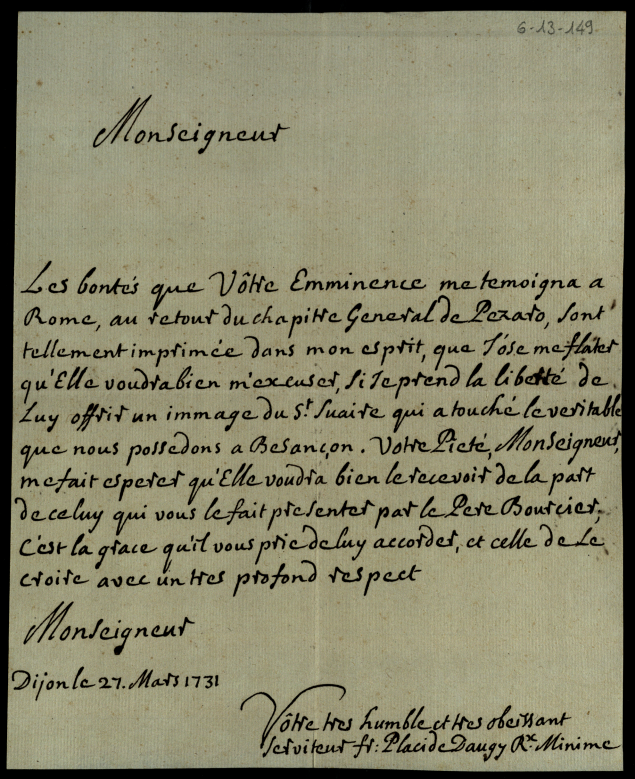 6-13-149.
Monseigneur
Les bontés que Vôtre Emminence me temoigna a
Rome, au retour du chapitre General de Pezaro, sont
tellement imprimée dans mon esprit, que J'ôse me flâter
qu'Elle voudra bien m'excuser, si Je prend la liberté de
Luy offrir un immage du St. Suaire qui a touché le veritable
que nous possedons a Besançon. Votre Pieté, Monseigneur,
me fait esperer qu'Elle voudra bien le recevoir de la part
de celuy qui vous le fait presenter par le Pere Bourcier;
C'est la grace qu'il vous prie de luy accorder, et celle de Le
croire avec un tres profond respect
Monseigneur
Dijon le 27. Mars 1731
Vôtre tres humble et tres obeissant
serviteur fr: Placide Daugy Rx. Minime